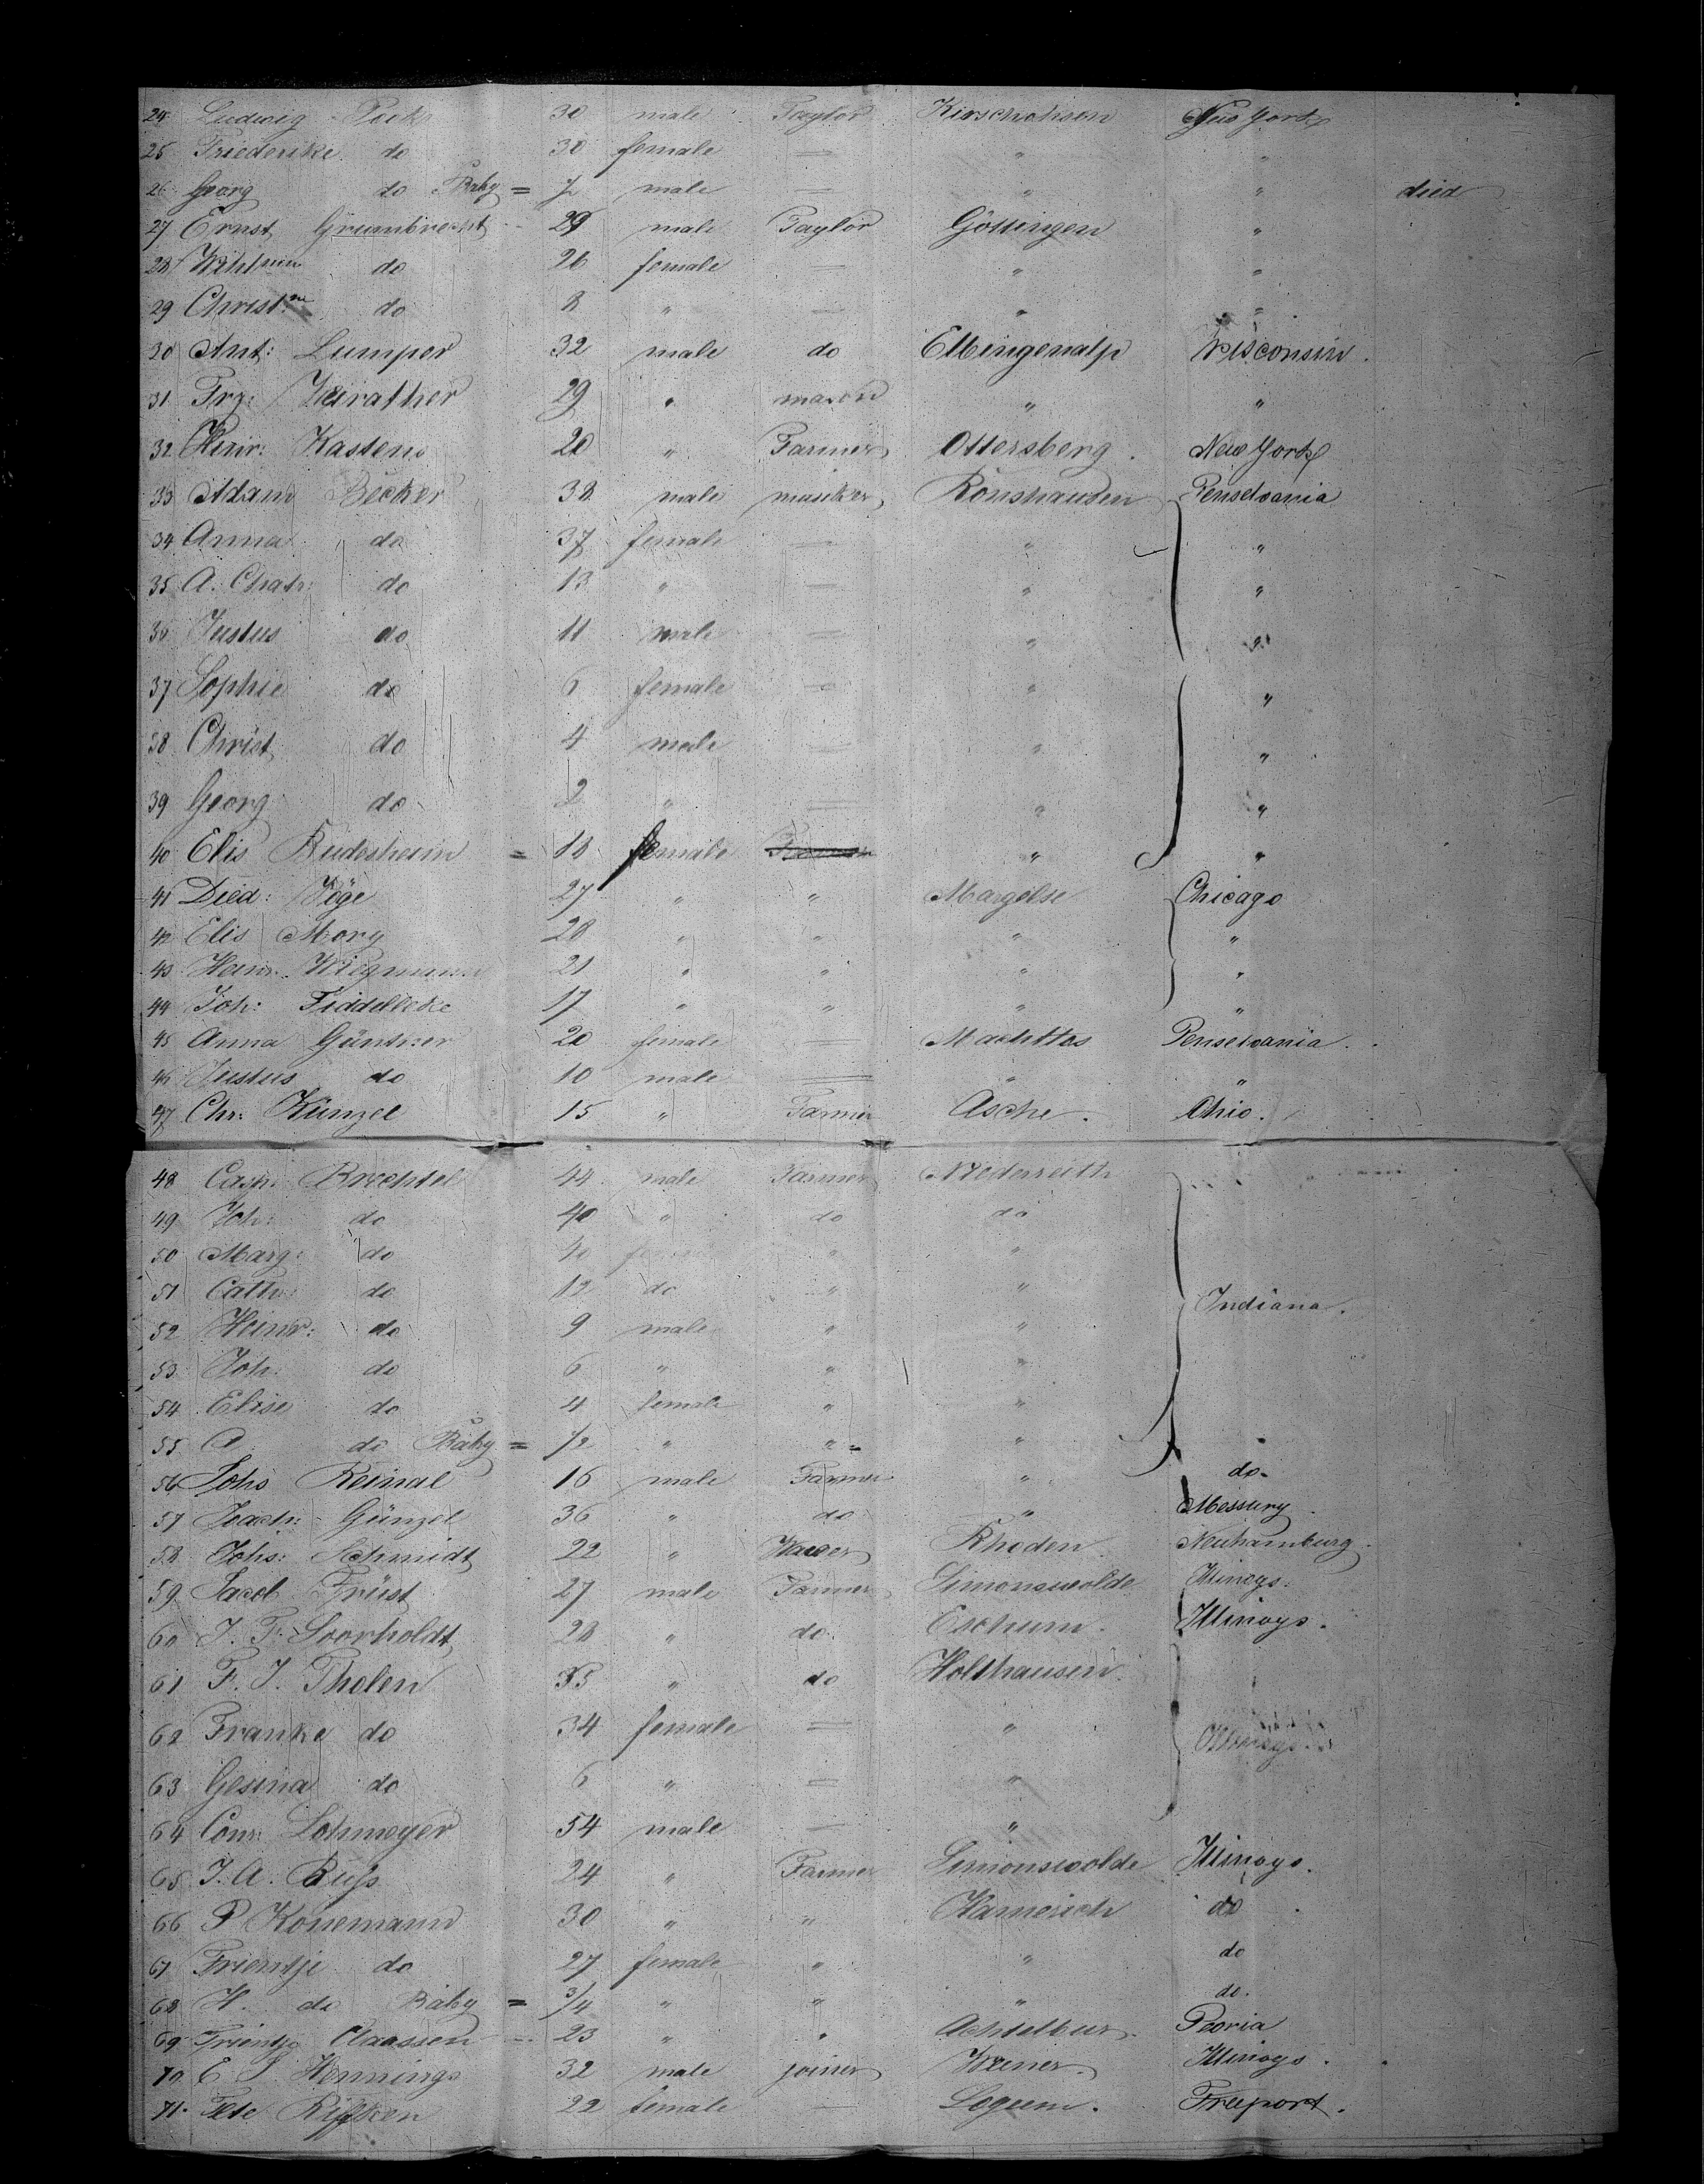 24 Ludwig 30 male Taylor Kirschohsen New York
25 Friederike do 30 female — " "
26 Georg do Baby = male — " " died
27 Ernst Grumbrecht 29 male Taylor Göttingen "
28 do 26 female — " "
29 Christ:ne do 8 " — " "
30 Ant: Lumper 32 male do Elbingenalp Wisconsin.
31 Frz: 29 " mason " "
32 Heinr: Kastens 20 " Farmer Ottersberg. New York
33 Adam Becker 38 male musiker Rönshausen Penselvania
34 Anna do 37 female — " "
35 A. Chatr: do 13 " — " "
36 Justus do 11 male — " "
37 Sophie do 6 female — " "
38 Christ do 4 male — " "
39 Georg do 2 " — " "
40 Elis Rudesheim = 18 female " "
41 Died: Vöge 27 " " Margelse Chicago
42 Elis Mory 28 " " " "
43 Heinr. Wiegmann 21 " " " "
44 Joh: 17 " " " "
45 Anna Güntner 20 female — Machttos Penselvania.
46 Justus do 10 male — " "
47 Chr: Künzel 15 " Farmer Asche. Ohio.
48 Casp: Brechtel 44 male Farmer
49 Joh: do 40 " do do
50 Marg: do 40 " "
51 Cath: do 12 do " "
Indiana.
52 Heinr: do 9 male " "
53 Joh: do 6 " " "
54 Elise do 4 female " "
55 A do Baby = 1/2 " " "
56 Johs Reinal 16 male Farmer " do.
57 Günzel 36 " do " Messury.
58 Johs: Schmidt 22 " Rhoden Neuhamburg.
59 Jacob Früst 27 male Farmer Simonswolde Illinoys.
60 J. F. Soorholdt 28 " do. Eschum. Illinoys.
61 F. J. Tholen 35 " do Holthausen.
62 Franke do 34 female — "
63 Gesina do 6 " — "
64 Conr: Lohmeyer 54 male — "
65 J. A. Buss 24 " Farmer Simonswolde Illinoys.
66 P Konemann 30 " " Hamerich do.
67 Frientje do 27 female " " do
68 H. do Baby = 3/4 " " " do.
69 Trientje Claassen 23 " " Achtelbur. Peoria
70 E J Hennings 32 male joiner Weener. Illinoys.
71. Rifken 22 female — Logum. Freeport.